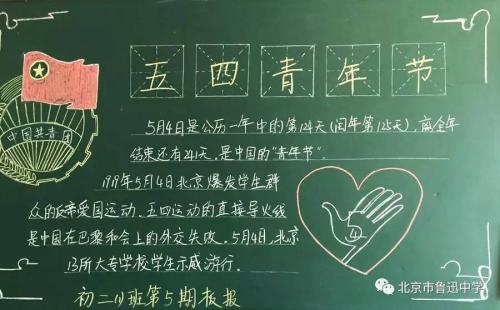 五四青年节
中国共青团
5月4日是公历一年中的第124天(闰年第125天),离全年
结束还有241天,是中国的"青年节".
1919年5月4日北京爆发学生群
众的反帝爱国运动、五四运动的直接导火线
是中国在巴黎和会上的外交失败。5月4日,北京
13所大专学校学生示威游行.
初二(1)班第5期板报
北京市鲁迅中学